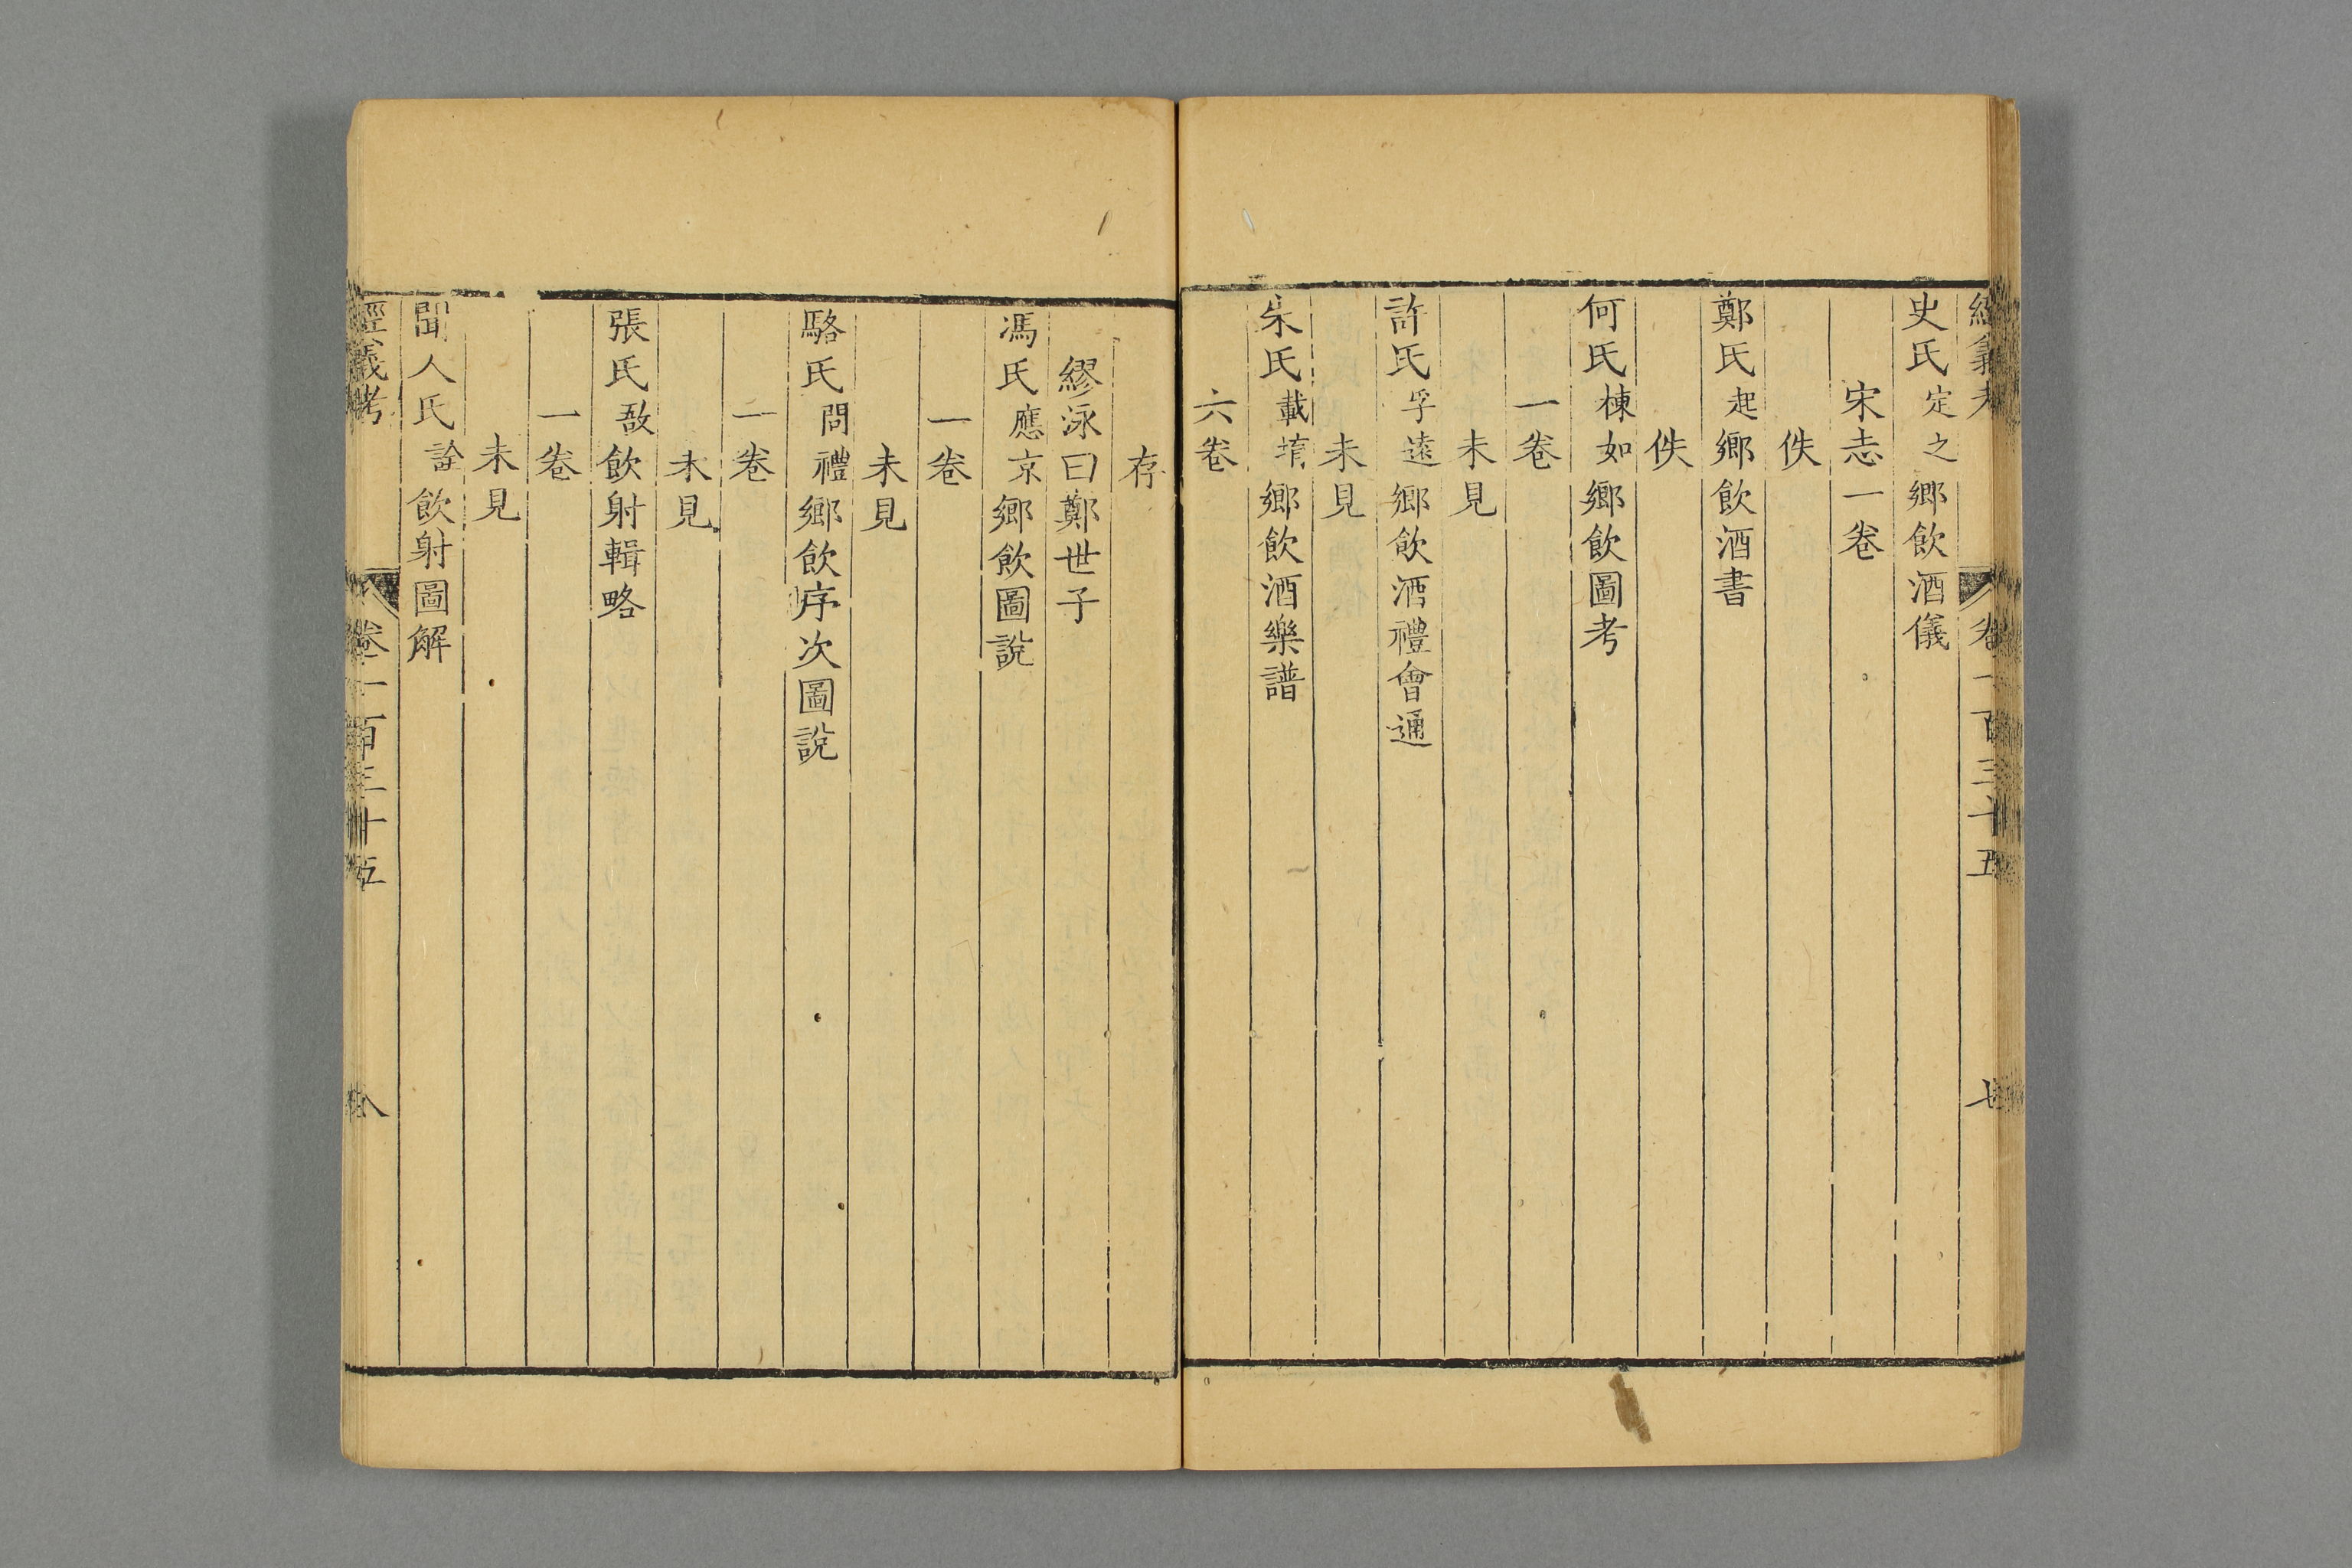 經義考 卷一百三十五 七
史氏定之鄉飲酒儀
宋志一卷
佚
鄭氏起鄉飲酒書
佚
何氏棟如鄉飲圖考
一卷
未見
許氏孚遠鄉飲酒禮會通
未見
朱氏載堉鄉飲酒樂譜
六卷
存
繆泳曰鄭世子
馮氏應京鄉飲圖說
一卷
未見
駱氏問禮鄉飲序次圖說
一卷
未見
張氏敔飲射輯略
一卷
未見
聞人氏詮飲射圖解
經義考 卷一百三十五 八